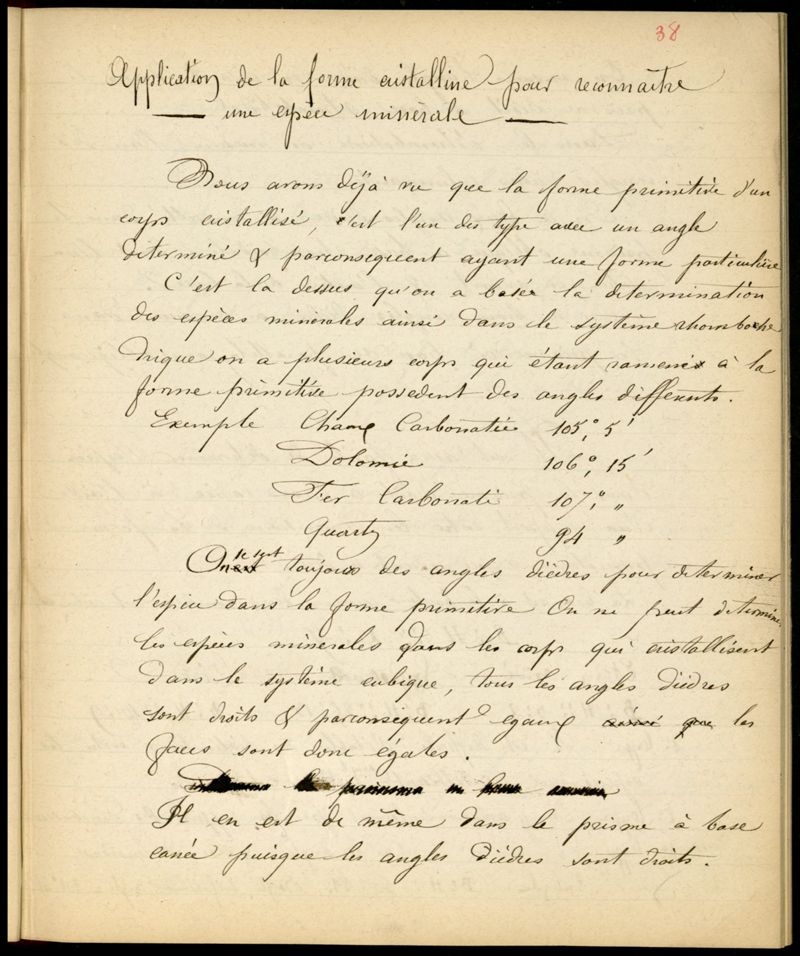 38
Application de la forme cristalline pour reconnaître
une espèce minérale
Nous avons déjà vu que la forme primitive d'un
corps cristallisé, c'est l'un des type avec un angle
determiné & parconsequent ayant une forme particulière
C'est la dessus qu'on a basée la determination
des espèces minérales ainsi dans le système rhombohe
drique on a plusieurs corps qui étant ramené à la
forme primitive possedent des angles différents.
Exemple Chaux Carbonatée 105°, 5'
Dolomie 106°, 15'
Fer Carbonaté 107°, "
Quartz 94 "
On se sert toujours des angles dièdres pour determiner
l'espèce dans la forme primitive On ne peut determiner
les espèces minerales dans les corps qui cristallisent
dans le système cubique, tous les angles dièdres
sont droits & parconséquent egaux ainsi que les
faces sont donc égales.
Il en est de même dans le prisme à base
carrée puisque les angles dièdres sont droits.